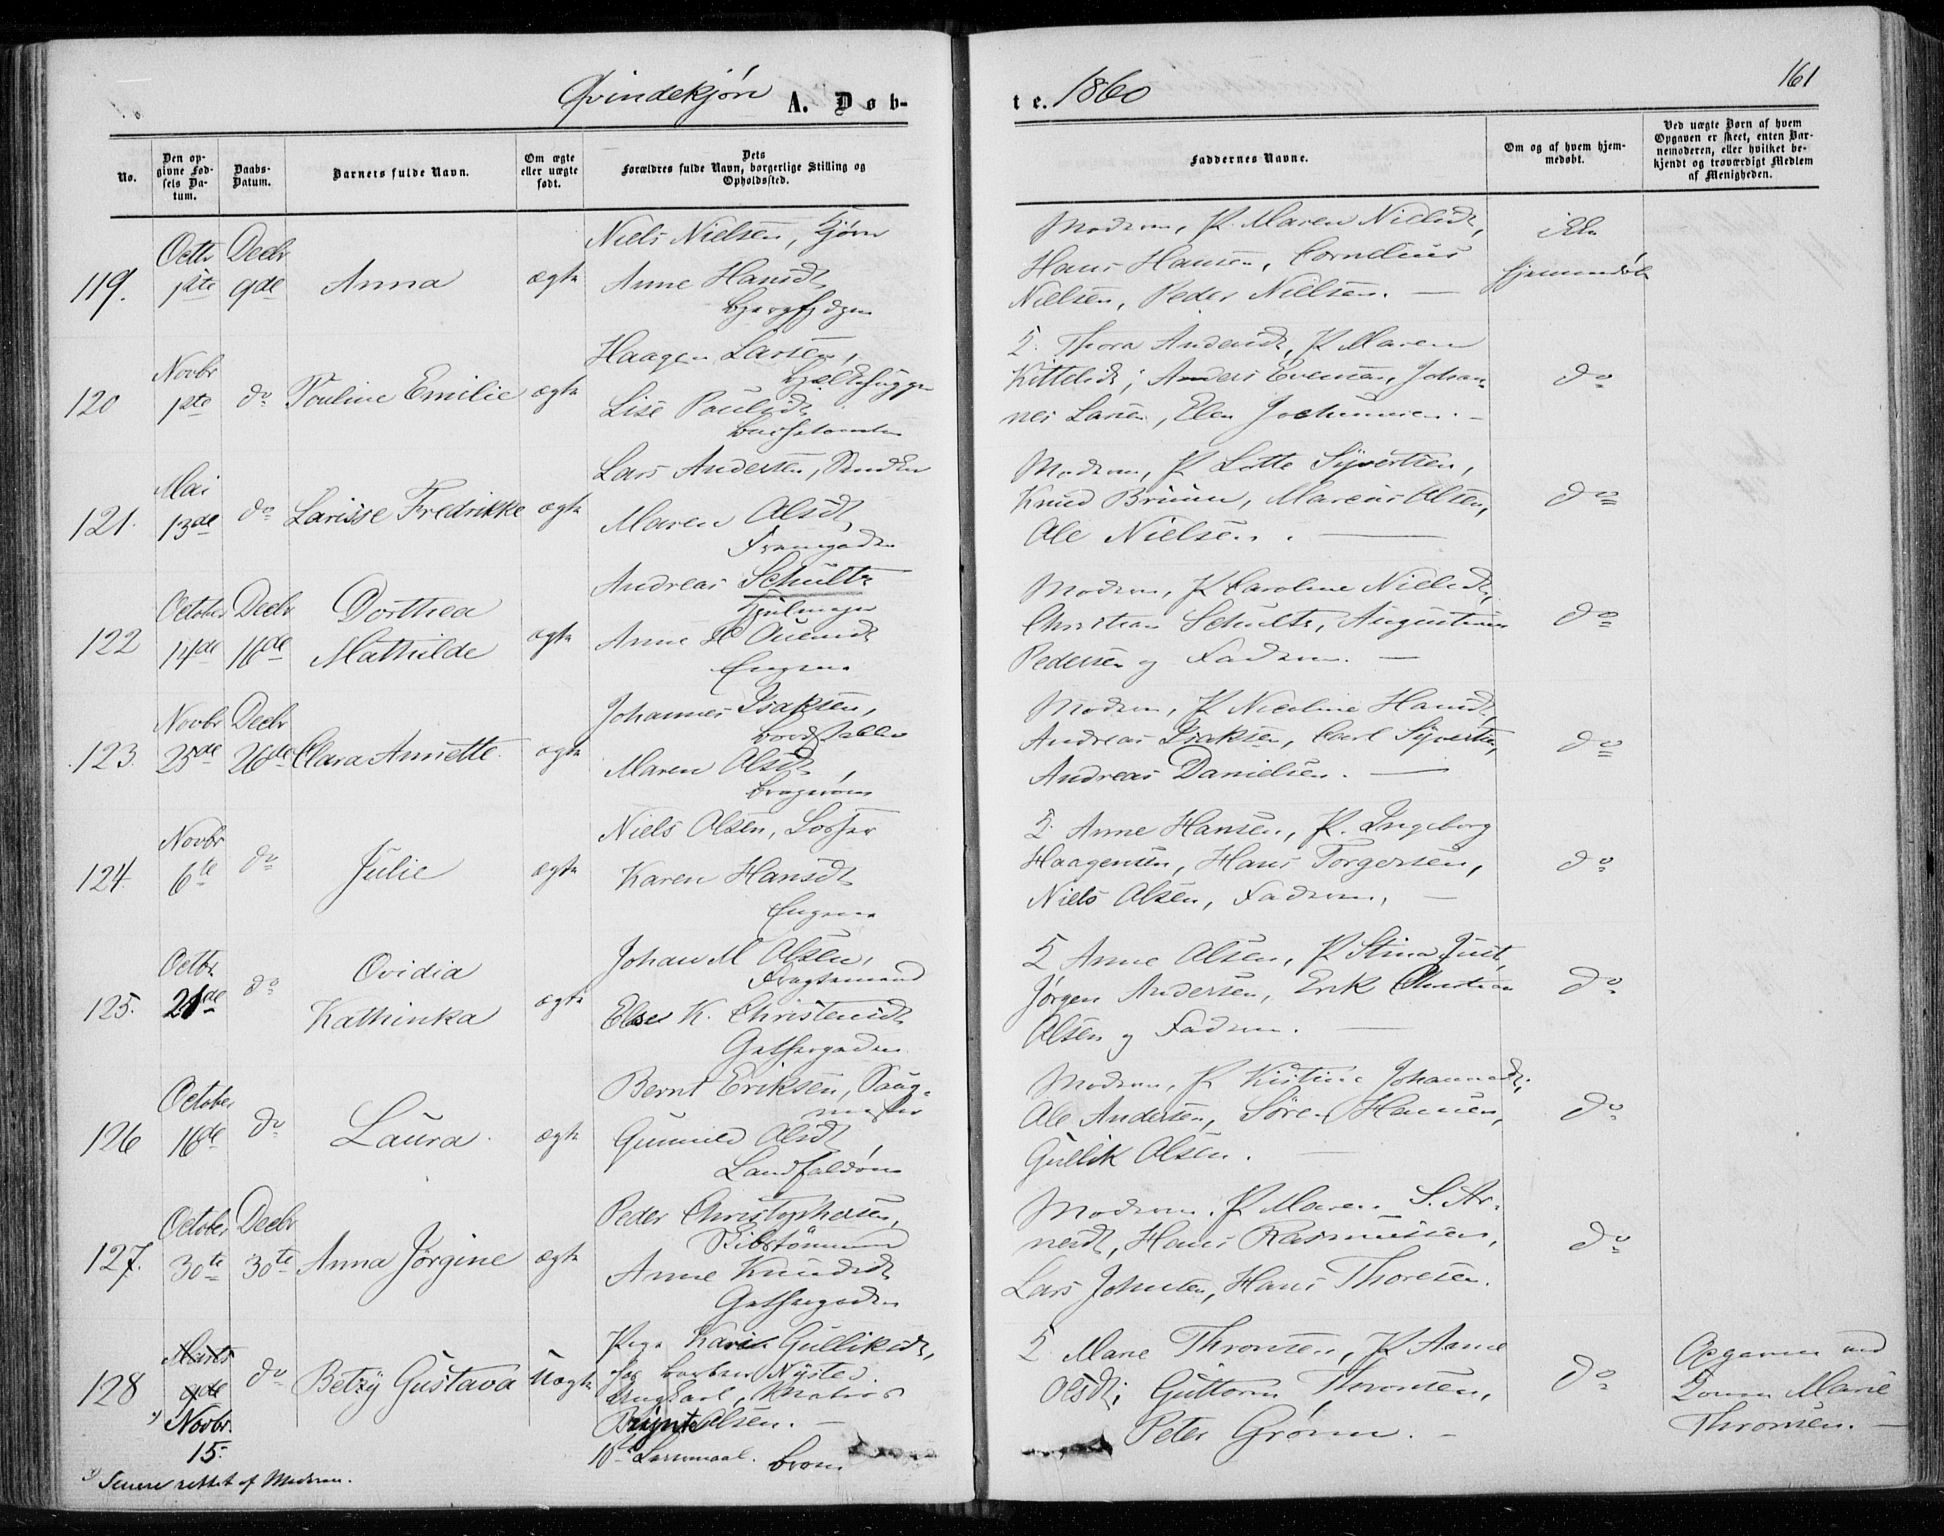 Qvindekjøn A. Døb-
te. 1860
161
No.
Den opgivne Fødsels Datum.
Daabs-Datum.
Barnets fulde Navn.
Om ægte eller uægte født.
Dets Forældres fulde Navn, borgerlige Stilling og Opholdssted.
Faddernes Navne.
Om og af hvem hjemmedøbt.
Ved uægte Børn af hvem Opgaven er skeet, enten Barnemoderen, eller hvilket bekjendt og troværdigt Medlem af Menigheden.
119. Octbr 1ste Decbr 9de Anna ægte
Niels Nielsen,
Anne Hansdt
Modren, P. Maren Nielsdt,
Hans Hansen, Cornelius
Nielsen, Peder Nielsen. —
ikke
hjemmedøbt
120 Novbr 1ste do Pouline Emilie ægte
Haagen Larsen,
Lise Paulsdt
2. Thora Andersdt, P. Maren
Kittelsdt; Anders Evensen, Johan-
nes Larsen, Elen Jochumsen. —
do
121. Mai 13de do Larisse Fredrikke ægte
Lars Andersen, Snedker
Maren Olsdt
Modren, P. Lotte Syvertsen,
Knud Bruun, Marcus Olsen,
Ole Nielsen. —
do
122 October 14de Decbr 16de Dorthea
Mathilde ægte
Andreas Schultz
Hjulmager
Anne
Engene
Modren, P. Caroline Nielsdt,
Christian Schultz, Augustinus
Pedersen og Fadren. —
do
123. Novbr 25de Decbr 26de Clara Annette. ægte
Johannes Isaksen,
Bordstabler
Maren Olsdt,
Bragerøen
Modren, P. Nicoline Hansdt,
Andreas Isaksen, Carl Syvertsen,
Andreas Danielsen. —
do
124. Novbr 6te do Julie ægte
Niels Olsen, Losser
Karen Hansdt
Engene
2. Anne Hansen, P. Ingeborg
Haagensen, Hans Torgersen,
Niels Olsen, Fadren, —
do
125. Octbr. 21de do Ovidia
Kathinka ægte
Johan M Olsen,
Fragtemand
Else K. Christensdt
2 Anne Olsen, P. Stina Juul,
Jørgen Andersen, Erik Christian
Olsen og Fadren. —
do
126 October 16de do Laura. ægte
Bernt Eriksen, Saug-
mester
Gunnild Olsdt,
Landfaldøen
Modren, P. Kirstine Johannesdt,
Ole Andersen, Søren Hansen,
Gullik Olsen. —
do
127. October 30te Decbr 30te Anna Jørgine ægte
Peder Christophersen,
Anne Knudsdt
Modren. P. Maren S. Ar-
nesdt, Hans Rasmussen,
Lars Johnsen, Hans Thoresen.
do
128 Marts 9de do Betzy Gustava Uægte
*) Novbr.
15.
Pige Karen Gulliksdt,
Ungkarl, Matros
Olsen. —
2 Marie Thronsen, P. Anne
Olsdt; Guttorm Thronsen,
Peter Grønn. —
do
Opgaven ved
Marie
Thronsen. —
*) Senere rettet af Modren.